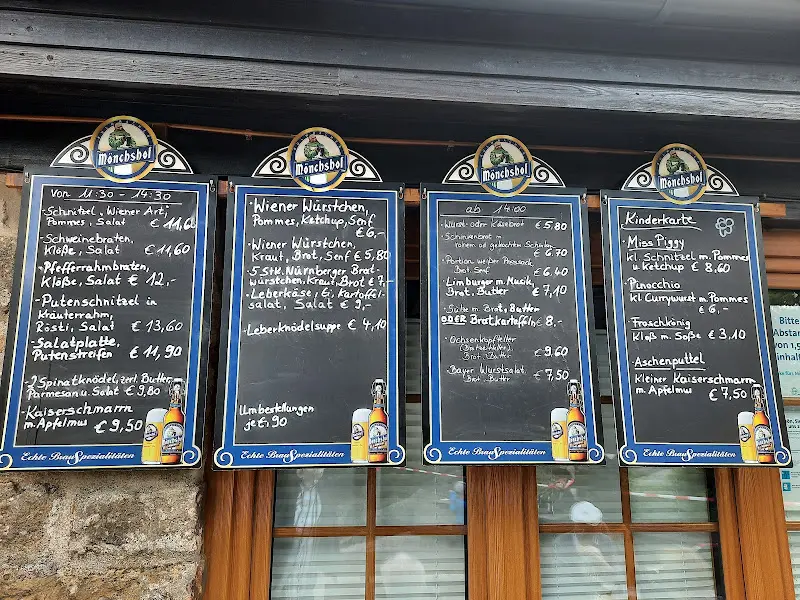 Mönchshof
von 11:30 - 14:30
- Schnitzel, Wiener Art,
Pommes, Salat € 11,60
- Schweinebraten,
Klöße, Salat € 11,60
- Pfefferrahmbraten,
Klöße, Salat € 12,-
- Putenschnitzel in
Kräuterrahm,
Rösti, Salat € 13,60
- Salatplatte,
Putenstreifen € 11,90
- 2 Spinatknödel, zerl. Butter
Parmesan u. Salat € 9,80
- Kaiserschmarrn
m. Apfelmus € 9,50
Echte BrauSpezialitäten
Mönchshof
- Wiener Würstchen,
Pommes, Ketchup, Senf
€ 6,-
- Wiener Würstchen,
Kraut, Brot, Senf € 5,80
- 5 Stk. Nürnberger Brat-
würstchen, Kraut, Brot € 7,-
- Leberkäse, Ei, Kartoffel-
salat, Salat € 9,-
- Leberknödelsuppe € 4,10
Umbestellungen
je € ,90
Echte BrauSpezialitäten
Mönchshof
ab 14:00
- Wurst- oder Käsebrot € 5,80
- Schinkenbrot m.
rohem od. gekochten Schinken
€ 6,70
- Portion weißer Presssack,
Brot, Senf € 6,40
- Limburger m. Musik,
Brot, Butter € 7,10
- Sülze m. Brot, Butter
ODER Bratkartoffeln € 8,-
- Ochsenkopfteller
Brot, Butter € 9,60
- Bayer. Wurstsalat,
Brot, Butter € 7,50
Echte BrauSpezialitäten
Mönchshof
Kinderkarte
- Miss Piggy
Kl. Schnitzel m. Pommes
u. Ketchup € 8,60
- Pinocchio
Kl. Currywurst m. Pommes
€ 6,-
- Froschkönig
Kloß m. Soße € 3,10
- Aschenputtel
Kleiner Kaiserschmarrn
m. Apfelmus € 7,50
Echte BrauSpezialitäten
Bitte
Abstan
von 1,5